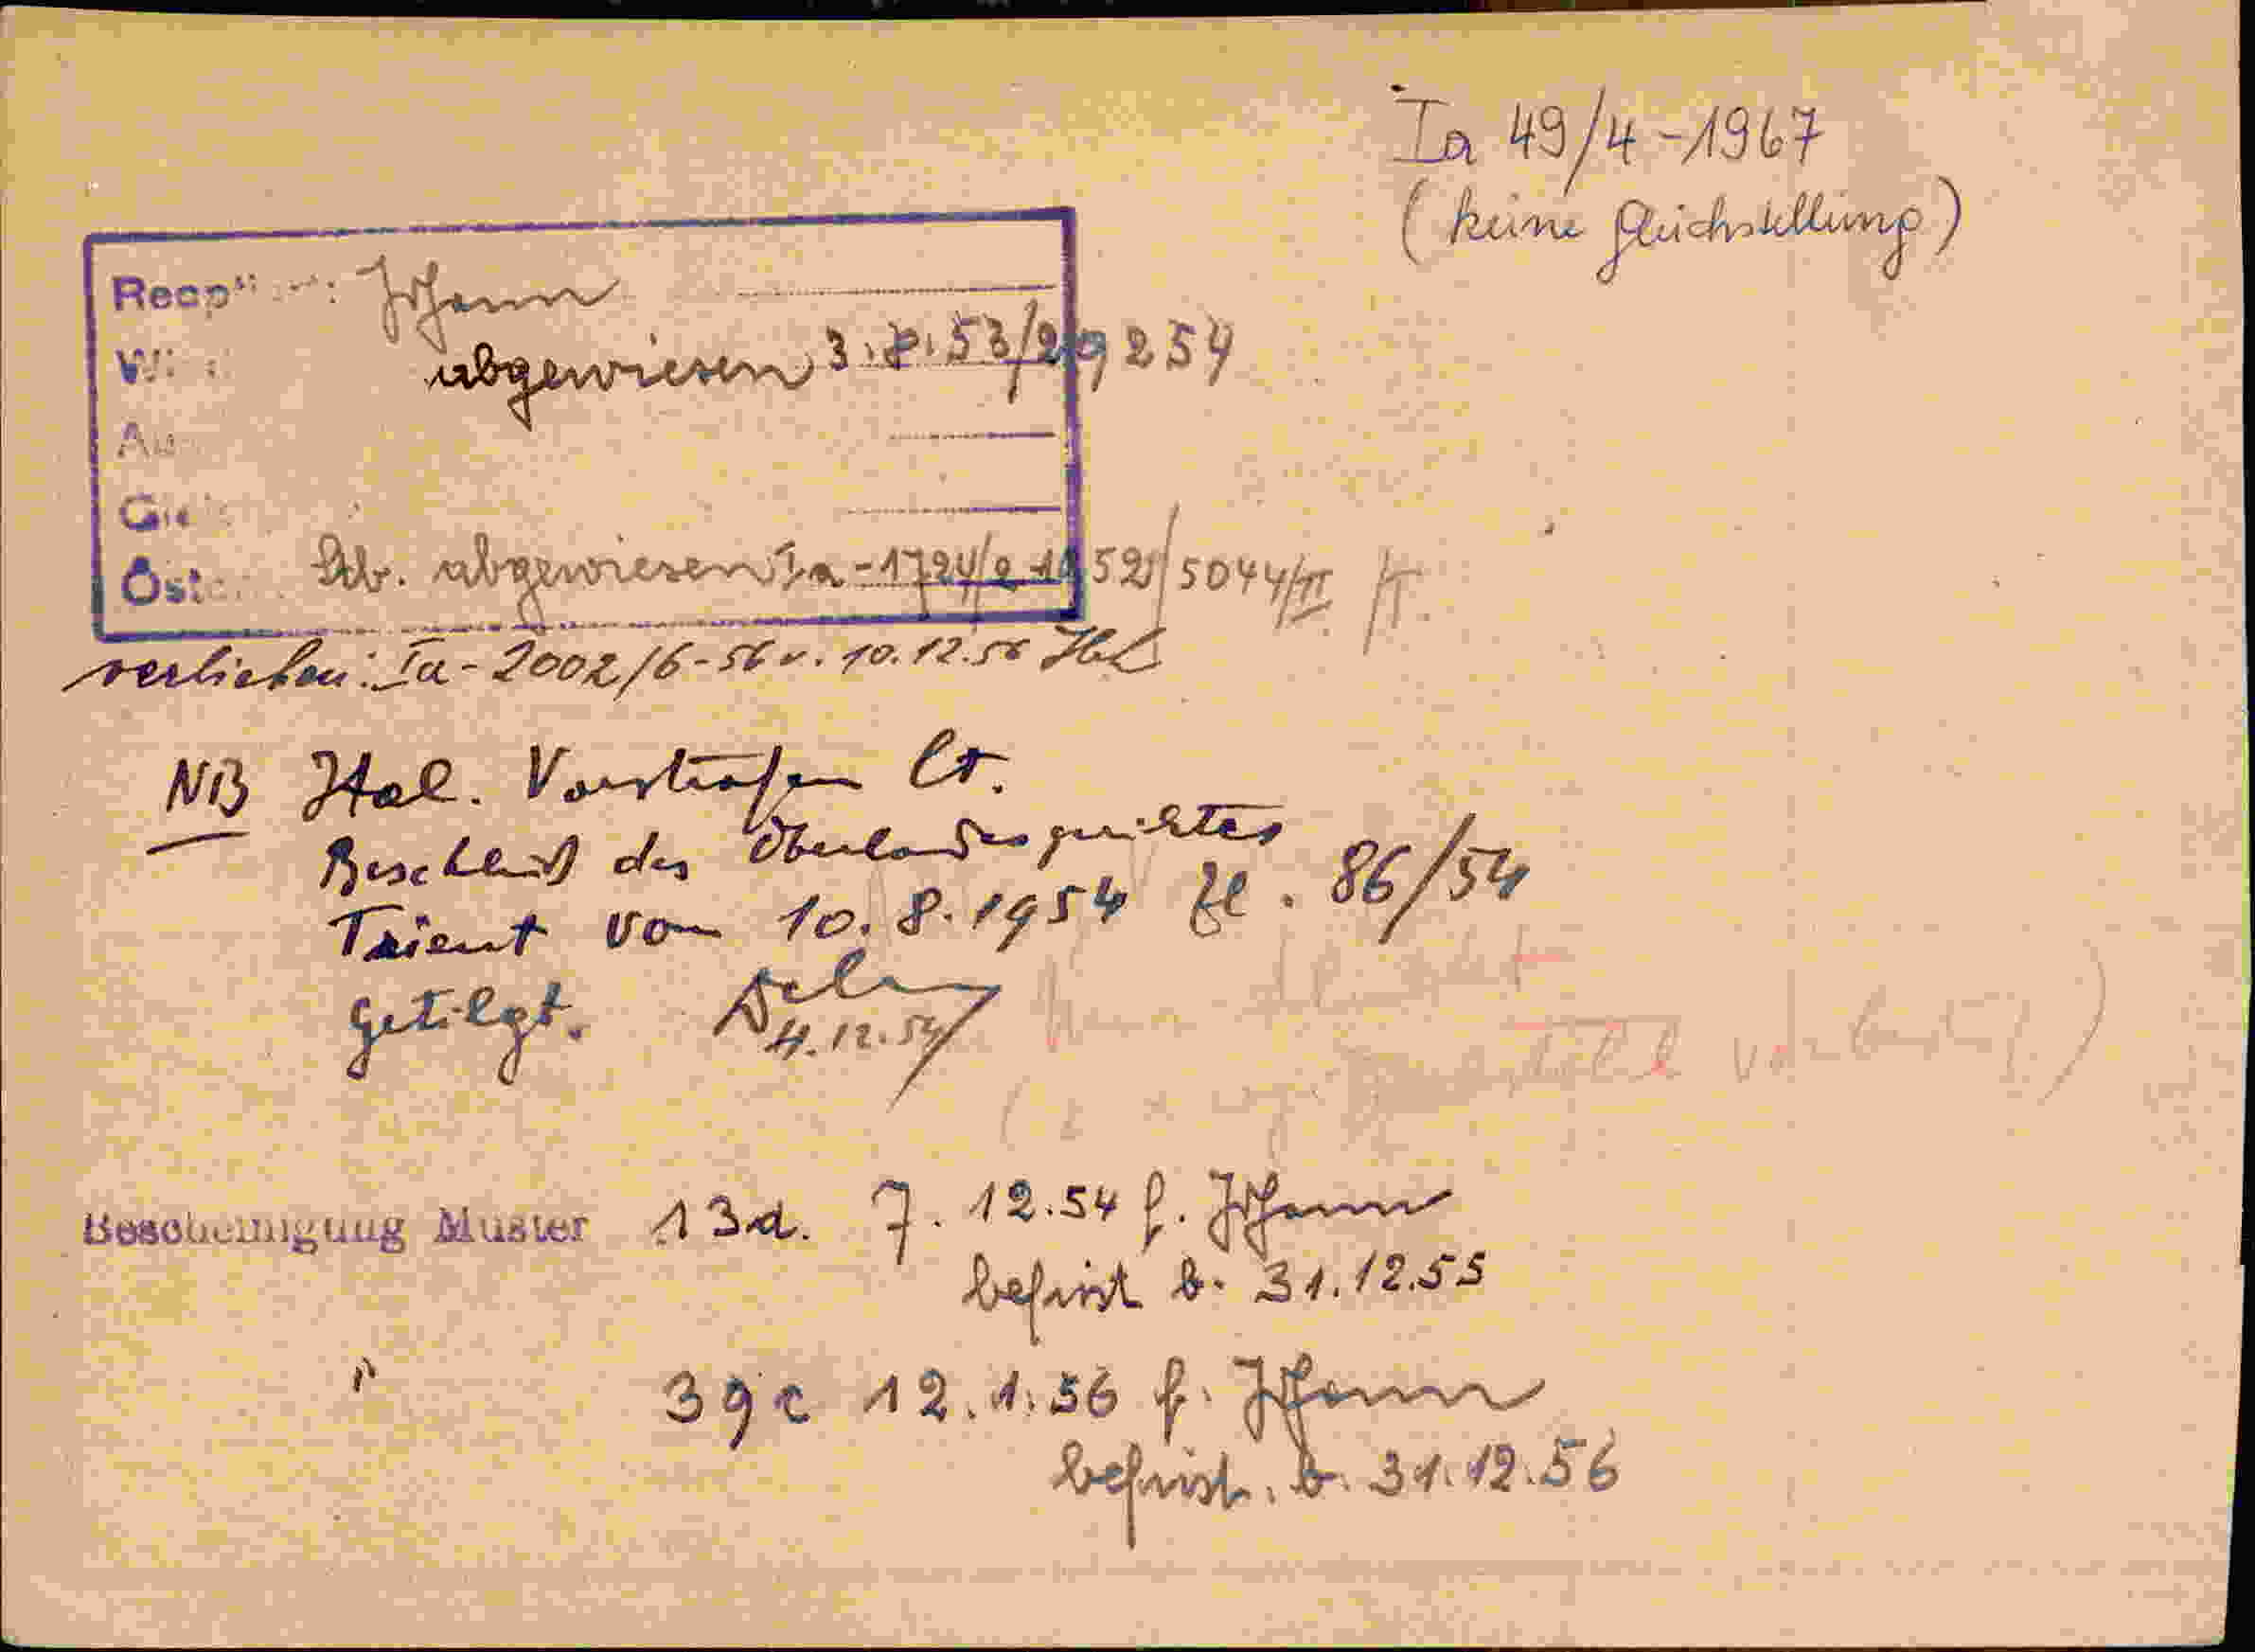 Ia 49/4-1967
(keine Gleichstellung)
Johann
abgewiesen 3.8.53/29254
Stb. abgewiesen Ia-1724/2-1952/5044/II
verliehen: Ia-2002/6-56 v. 10.12.56
NB Ital. Vorstrafen lt.
Beschluß des Oberlandesgerichtes
Trient vom 10.8.1954 Zl. 86/54
getilgt.
4.12.54
Bescheinigung Muster 13d. 7.12.54 f. Johann
befrist b. 31.12.55
" 39c 12.1.56 f. Johann
befrist. b. 31.12.56